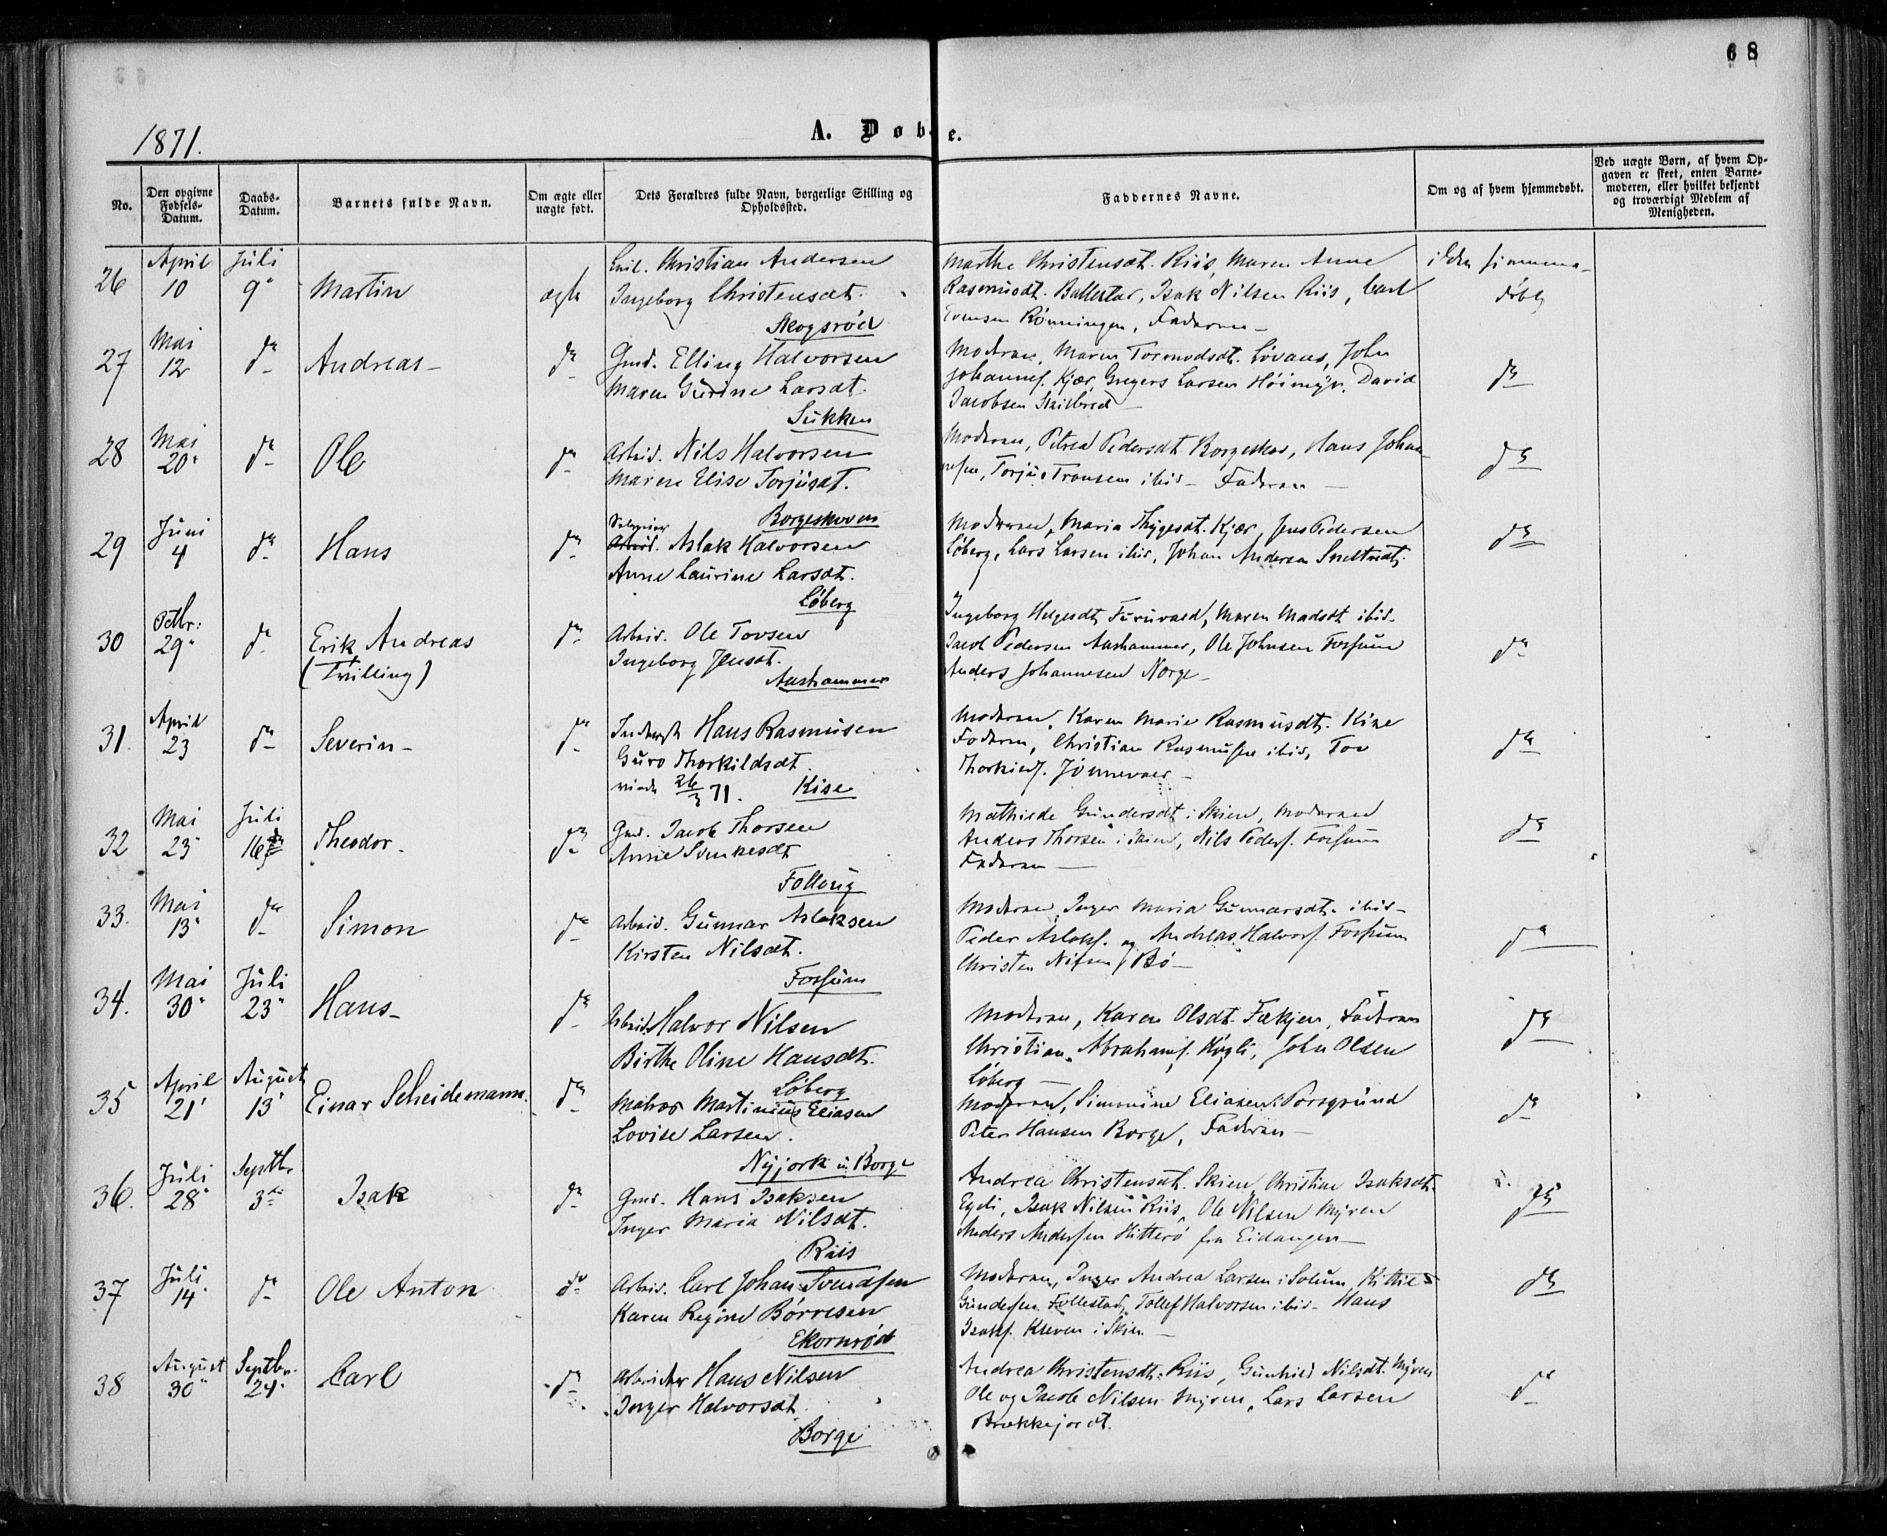 68
1871.
A. Døbte.
No.
Den opgivne Fødsels-Datum.
Daabs-Datum.
Barnets fulde Navn.
Om ægte eller uægte født.
Dets Forældres fulde Navn, borgerlige Stilling og Opholdssted.
Faddernes Navne.
Om og af hvem hjemmedøbt.
Ved uægte Børn, af hvem Opgaven er skeet, enten Barnemoderen, eller hvilket bekjendt og troværdigt Medlem af Menigheden.
26 April 10 Juli 9 Martin ægte
Christian Andersen
Ingeborg Christensdt.
Skogsrød
Marthe Christensdt. Riis, Maren Anne
Rasmusdt. Ballestad, Isak Nilsen Riis, Carl
Evensen Rønningen, Faderen
ikke hjemme-
døbt
27 Mai 12 do Andreas do
Gmd. Elling Halvorsen
Maren Gurine Larsdt.
Sukken
Moderen, Maren Tormodsdt. Løvaas, John
Johannes. Kjær, Gregers Larsen Høimyr, David
Jacobsen
do
28 Mai 20 do Ole do
Arbeid. Nils Halvorsen
Maren Elise Torjusdt.
Borgeskoven
Moderen, Petrea Pedersdt. Borgeskov, Hans Johan-
nesen, Torju Tronsen ibid. Faderen
do
29 Juni 4 do Hans do
Arbeid. Aslak Halvorsen
Anne Laurine Larsdt.
Løberg
Moderen, Maria Thygesdt. Kjær, Jens Pedersen
Løberg, Lars Larsen ibid, Johan Andersen
do
30 29 do Erik Andreas
(Tvilling) do
Arbeid. Ole Tovsen
Ingeborg Jensdt.
Aashammer
Ingeborg Helgesdt. Furuvald, Maren Madsdt. ibid.
Jacob Pedersen Aashammer, Ole Johnsen Fossum
Anders Johannesen Norge
do
31. April 23 do Severin do
Inderst Hans Rasmusen
Guro Thorkildsdt.
viede 26/3 71. Kise
Moderen, Karen Marie Rasmusdt. Kise
Faderen, Christian Rasmussen ibid, Tov
Thorkilds. Jønnevald
do
32 Mai 23 Juli 16 Theodor. do
Gmd. Jacob Thorsen
Anne Svenkesdt
Follaug
Mathilde Gundersdt. i Skien, Moderen
Anders Thorsen i Skien, Nils Peders. Fossum
Faderen
do
33. Mai 13 do Simon do
Arbeid. Gunnar Aslaksen
Kirsten Nilsdt.
Fossum
Moderen, Inger Maria Gunnarsdt. ibid.
Peder Aslaks. og Andreas Halvors. Fossum
Christen Nilsen Bø
do
34. Mai 30 Juli 23 Hans do
Arbeid. Halvor Nilsen
Birthe Oline Hansdt.
Løberg
Moderen, Karen Olsdt. Fækjen, Faderen
Christian Abrahams. Høgli, John Olsen
Løberg
do
35 April 21 August 13 Einar Scheidemann. do
Matros Martinius Eliasen
Lovise Larsen.
Nyjork i Borge
Moderen, Simonine Eliasen Porsgrund
Peter Hansen Borge, Faderen
do
36. Juli 28 Septbr. 3 Isak do
Gmd. Hans Isaksen
Inger Maria Nilsdt.
Riis
Andrea Christensdt. Skien, Christine Isaksdt.
Isak Nilsen Riis, Ole Nilsen Myren
Anders Andersen Hitterø fra Eidanger
do
37 Juli 14 do Ole Anton do
Arbeid. Carl Johan Svendsen
Karen Regine Børresen
Ekornrød
Moderen, Inger Andrea Larsen i Solum, Kittil
Gundersen Follestad, Tollef Halvorsen ibid. Hans
Isaks. Kleven i Skien
do
38 August 30 Septbr. 24 Carl do
Arbeider Hans Nilsen
Inger Halvorsdt
Borge
Andrea Christensdt. Riis, Gunhild Nilsdt. Myren
Ole og Jacob Nilsen Myren, Lars Larsen
Brækkejordet.
do